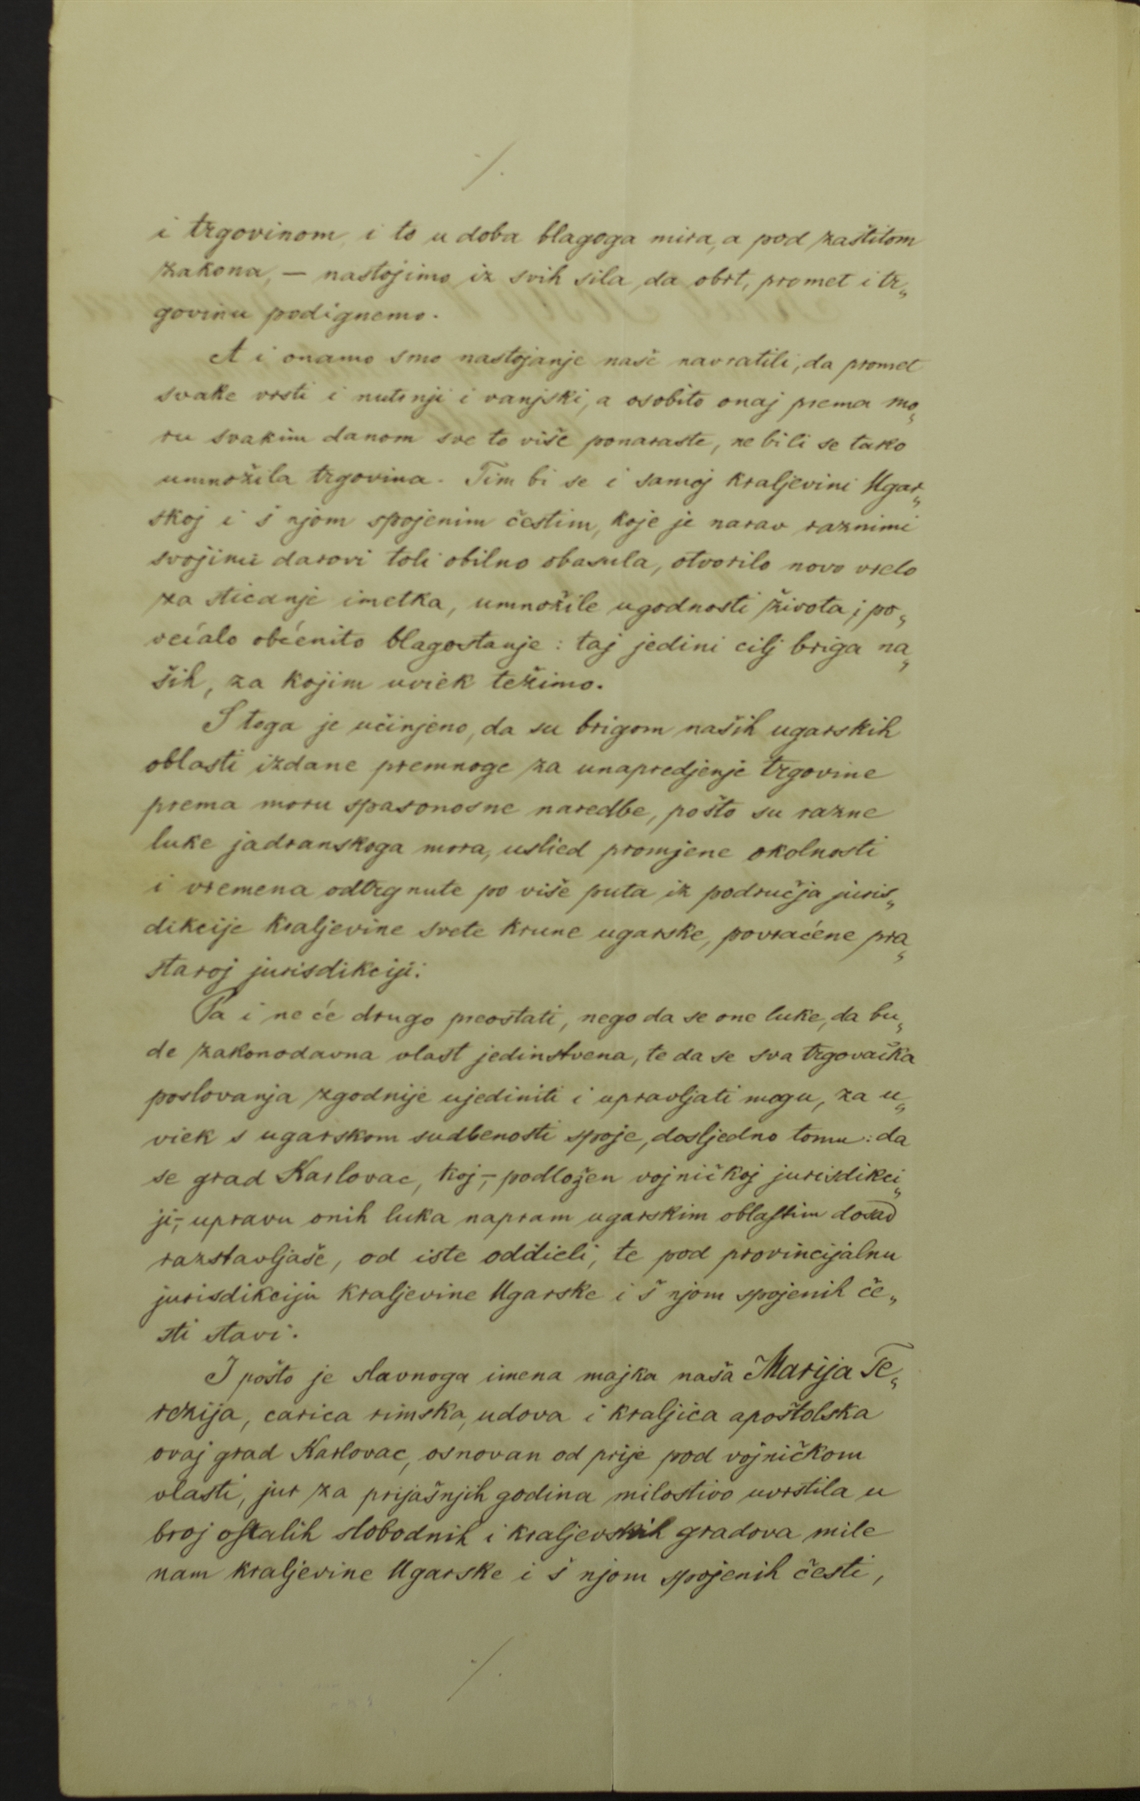 ·/.
i trgovinom, i to u doba blagoga mira, a pod zaštitom
zakona, — nastojimo iz svih sila, da obrt, promet i tr„
govinu podignemo.
A i onamo smo nastojanje naše navratili, da promet
svake vrsti i nutrnji i vanjski, a osobito onaj prema mo„
ru svakim danom sve to više ponaraste, ne bi li se tako
umnožila trgovina. Tim bi se i samoj kraljevini Ugar„
skoj i š njom spojenim čestim, koje je narav raznimi
svojimi darovi toli obilno obasula, otvorilo novo vrelo
za sticanje imetka, umnožile ugodnosti života i po„
većalo obćenito blagostanje: taj jedini cilj briga na„
ših, za kojim uviek težimo.
S toga je učinjeno, da su brigom naših ugarskih
oblasti izdane premnoge za unapredjenje trgovine
prema moru spasonosne naredbe, pošto su razne
luke jadranskoga mora, uslied promjene okolnosti
i vremena odtrgnute po više puta iz područja juris„
dikcije kraljevine svete krune ugarske, povraćene pra„
staroj jurisdikciji.
Pa i ne će drugo preostati, nego da se one luke, da bu„
de zakonodavna vlast jedinstvena, te da se sva trgovačka
poslovanja zgodnije ujediniti i upravljati mogu, za u„
viek s ugarskom sudbenosti spoje, dosljedno tomu: da
se grad Karlovac, koj,- podložen vojničkoj jurisdikci„
ji,- upravu onih luka napram ugarskim oblastim dosad
razstavljaše, od iste oddieli, te pod provincijalnu
jurisdikciju kraljevine Ugarske i š njom spojenih če„
sti stavi.
I pošto je slavnoga imena majka naša Marija Te„
rezija, carica rimska, udova i kraljica apoštolska
ovaj grad Karlovac, osnovan od prije pod vojničkom
vlasti, jur za prijašnjih godina milostivo uvrstila u
broj ostalih slobodnih i kraljevskih gradova mile
nam kraljevine Ugarske i š njom spojenih česti,
·/.